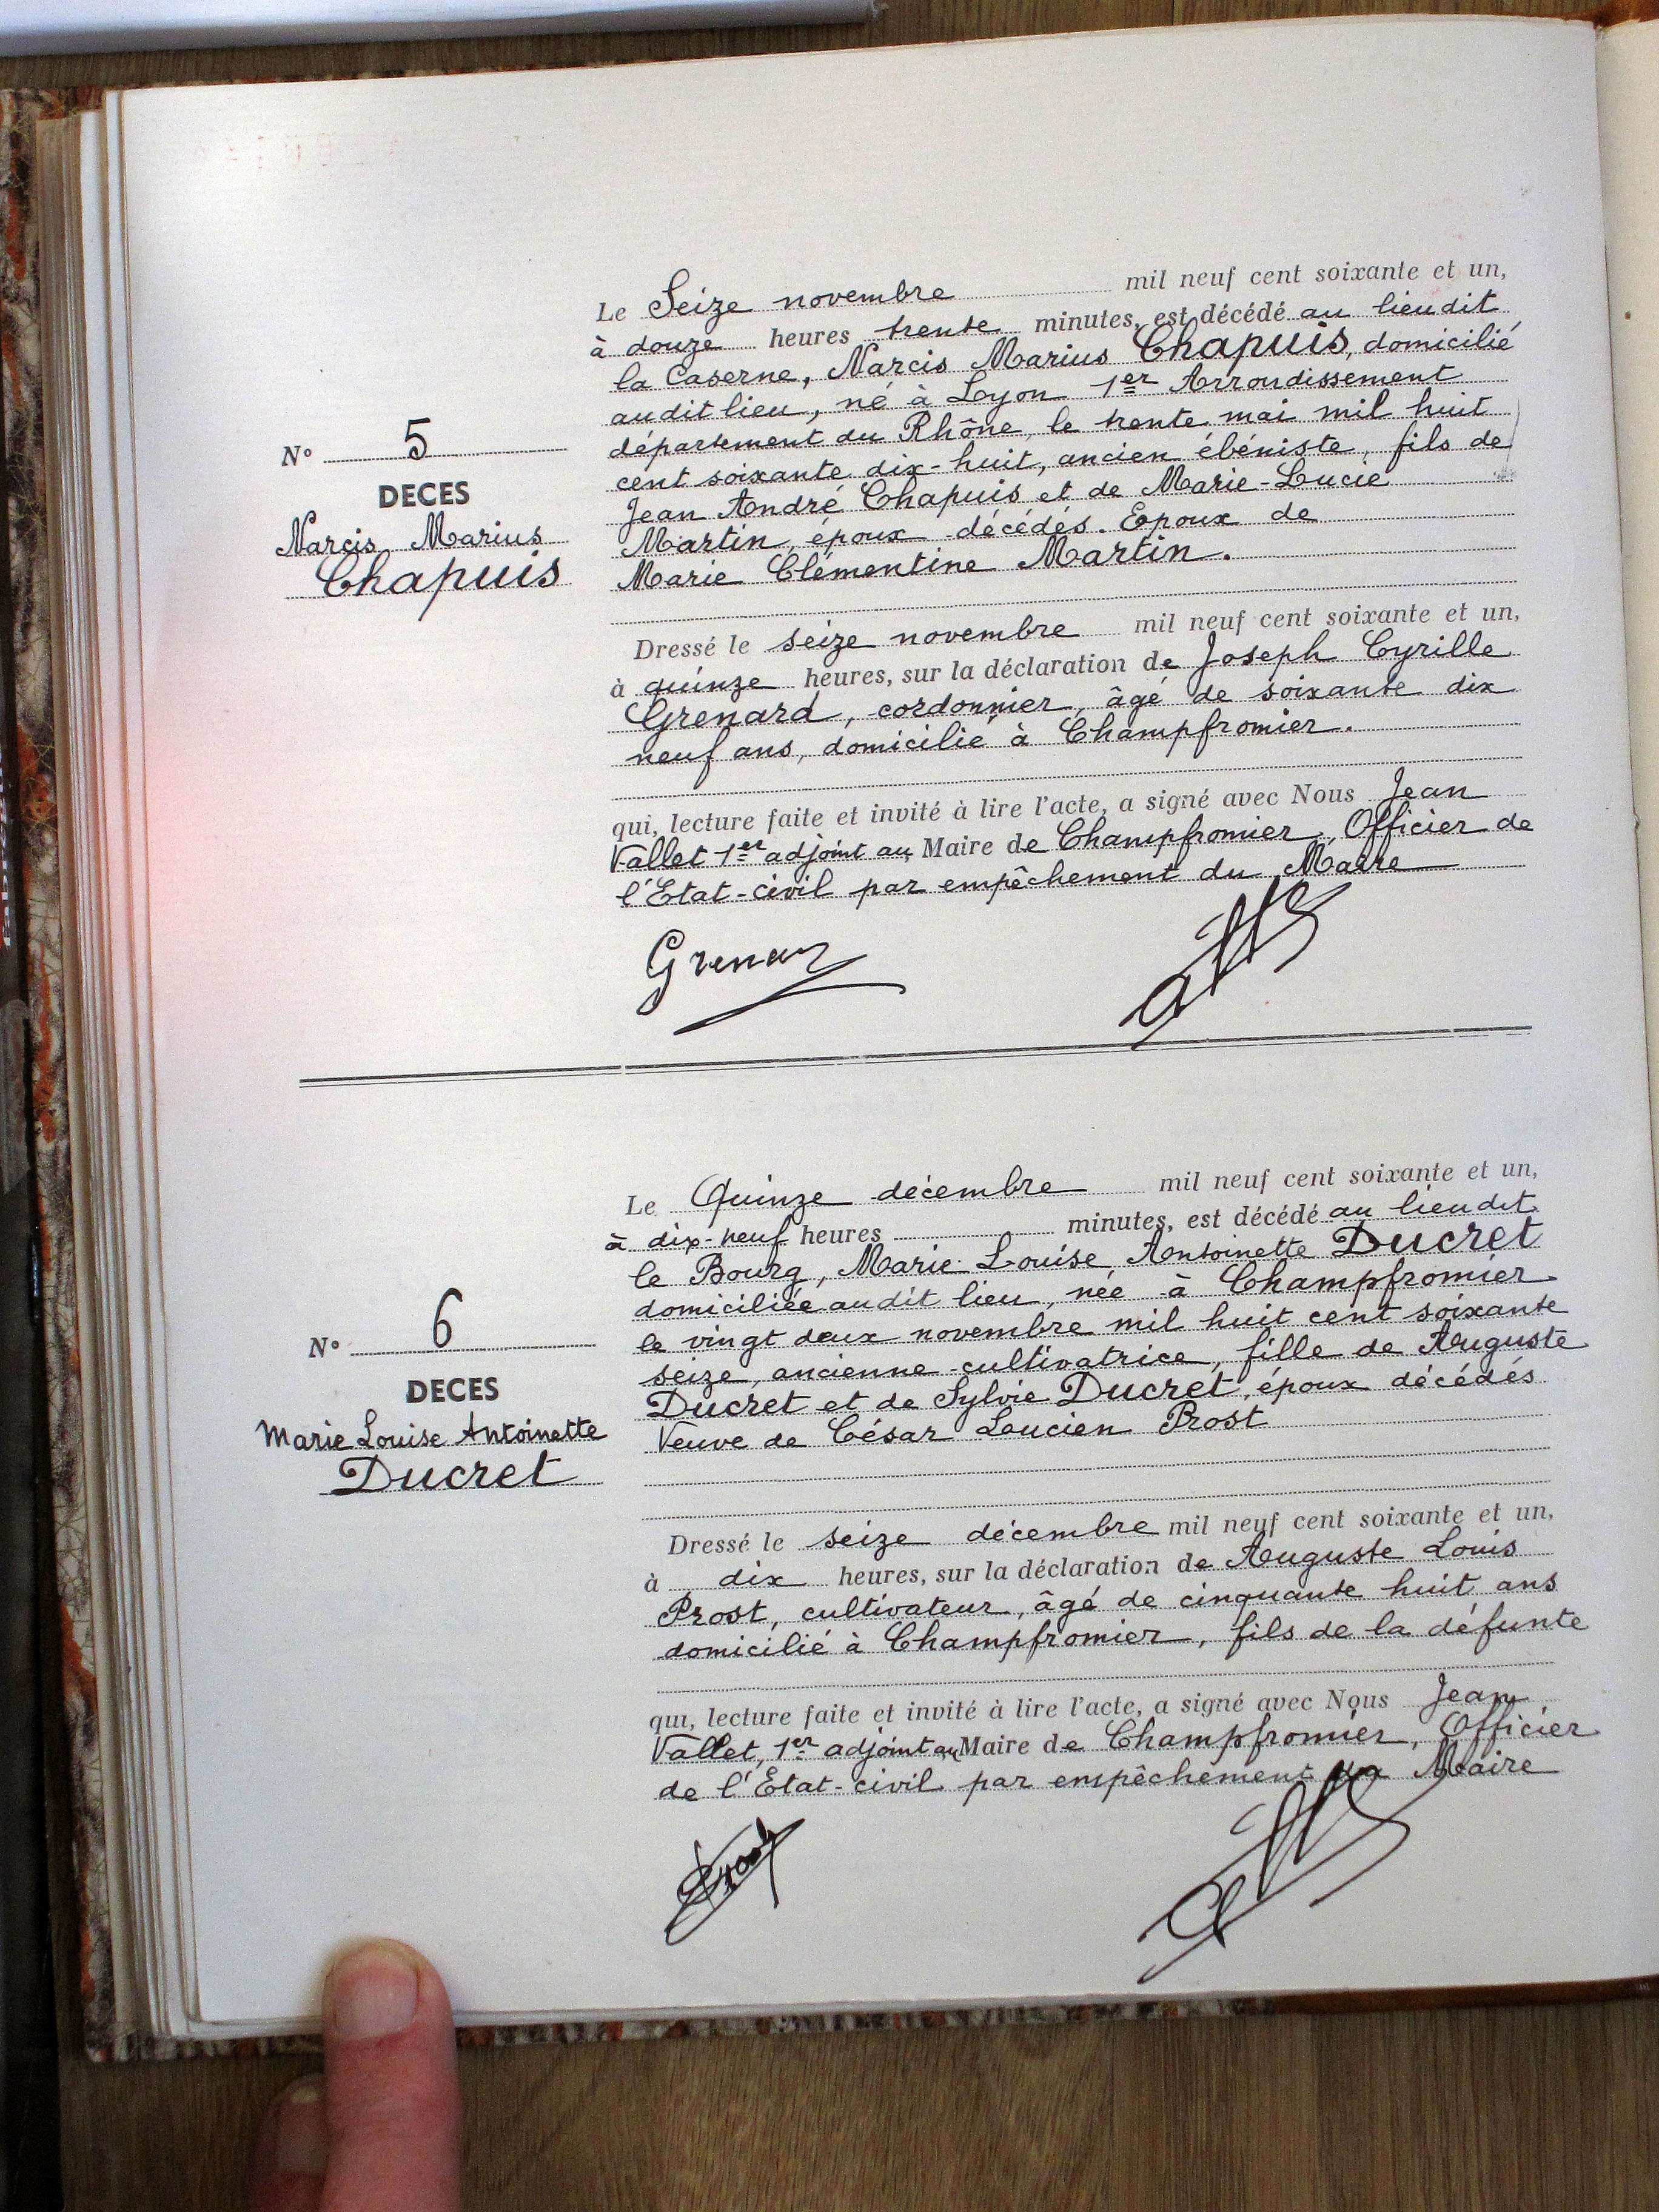 Le Seize novembre mil neuf cent soixante et un,
à douze heures trente minutes, est décédé au lieu dit
la Caserne, Narcis Marius Chapuis, domicilié
audit lieu, né à Lyon 1er Arrondissement
département du Rhône, le trente mai mil huit
cent soixante dix-huit, ancien ébéniste, fils de
Jean André Chapuis et de Marie-Lucie
Martin, époux décédés. Epoux de
Marie Clémentine Martin.
N° 5
DECES
Narcis Marius
Chapuis
Dressé le seize novembre mil neuf cent soixante et un,
à quinze heures, sur la déclaration de Joseph Cyrille
Grenard, cordonnier, âgé de soixante dix
neuf ans, domicilié à Champfromier.
qui, lecture faite et invité à lire l'acte, a signé avec Nous Jean
Vallet 1er adjoint au Maire de Champfromier, Officier de
l'Etat-civil par empêchement du Maire
Le Quinze décembre mil neuf cent soixante et un,
à dix-neuf heures minutes, est décédé au lieu dit
le Bourg, Marie Louise Antoinette Ducret
domiciliée audit lieu, née à Champfromier
le vingt deux novembre mil huit cent soixante
seize, ancienne cultivatrice, fille de Auguste
Ducret et de Sylvie Ducret, époux décédés
Veuve de César Lucien Prost
N° 6
DECES
Marie Louise Antoinette
Ducret
Dressé le seize décembre mil neuf cent soixante et un,
à dix heures, sur la déclaration de Auguste Louis
Prost, cultivateur, âgé de cinquante huit ans
domicilié à Champfromier, fils de la défunte
qui, lecture faite et invité à lire l'acte, a signé avec Nous Jean
Vallet, 1er adjoint au Maire de Champfromier, Officier
de l'Etat-civil par empêchement du Maire